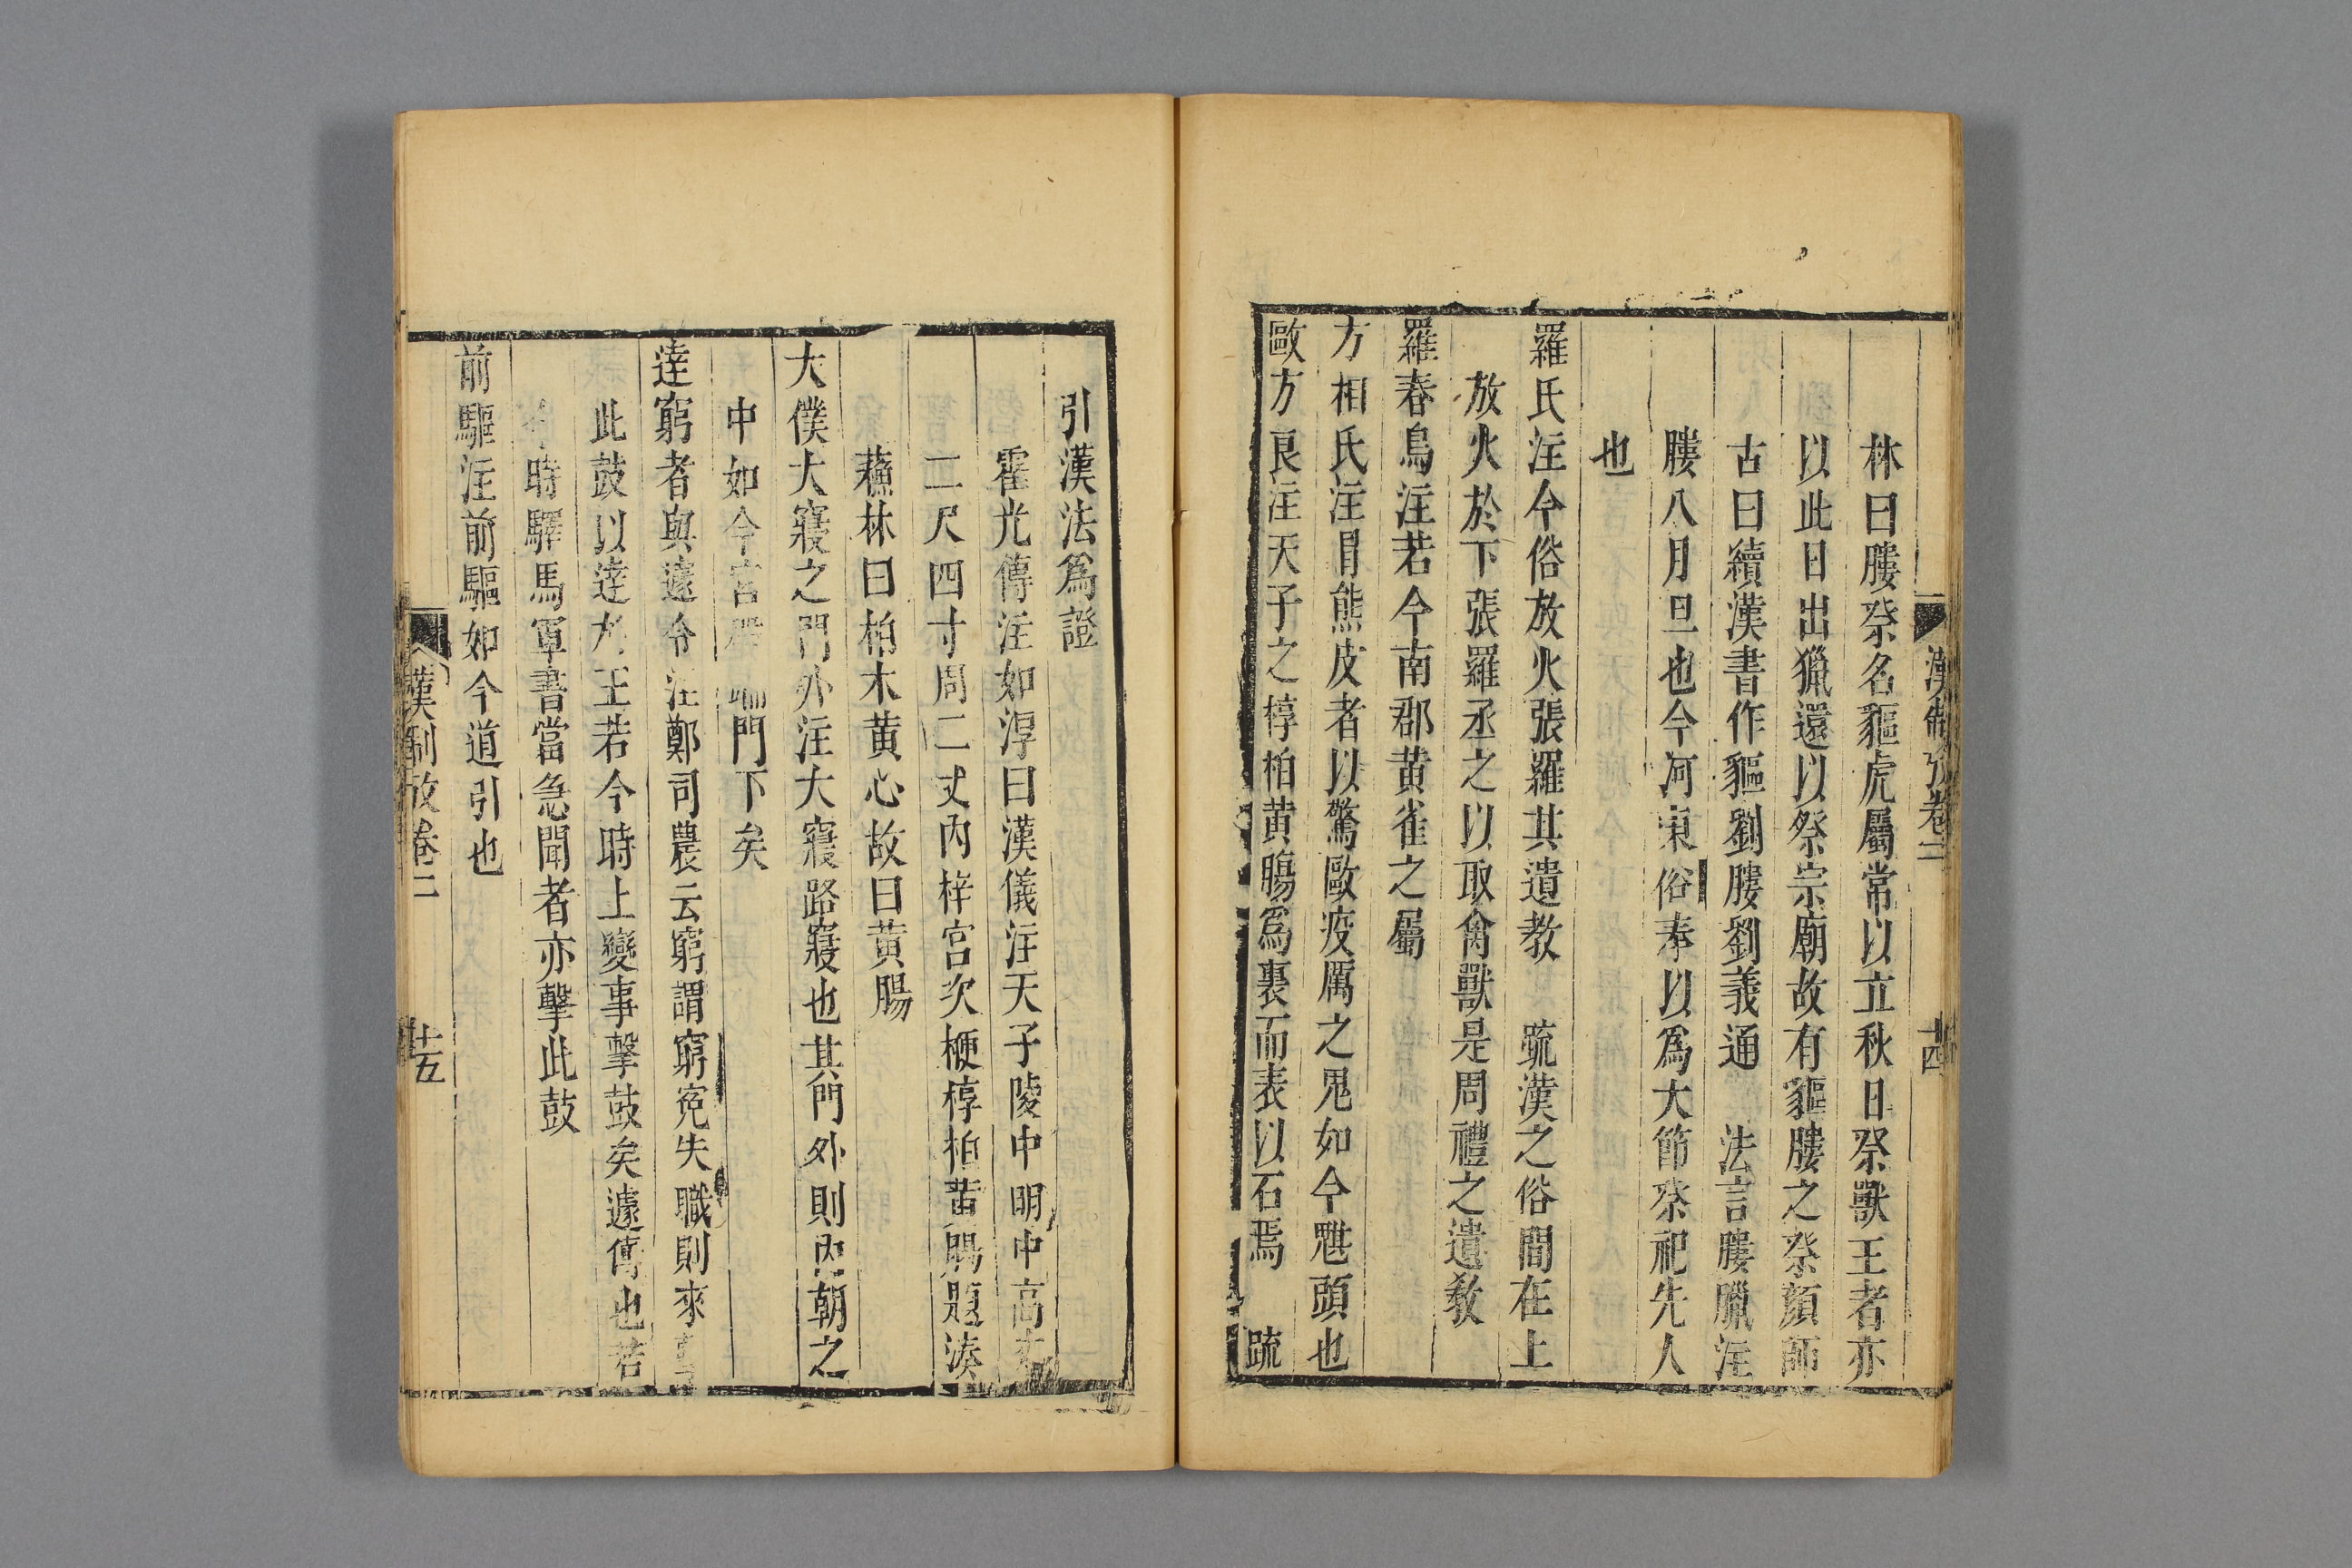 漢制攷卷二 十四
林曰膢祭名貙虎屬常以立秋日祭獸王者亦
以此日出獵還以祭宗廟故有貙膢之祭顏師
古曰續漢書作貙劉膢劉義通 法言膢臘注
膢八月旦也今河東俗奉以為大節祭祀先人
也
羅氏注今俗放火張羅其遺教 疏漢之俗間在上
放火於下張羅丞之以取禽獸是周禮之遺教
羅春鳥注若今南郡黃雀之屬
方相氏注冐熊皮者以驚歐疫厲之鬼如今魌頭也
歐方良注天子之椁柏黃腸為裏而表以石焉 疏
引漢法爲證
霍光傳注如淳曰漢儀注天子陵中明中高丈
二尺四寸周二丈內梓宮次楩椁柏黃腸題湊
蘇林曰柏木黃心故曰黃腸
大僕大寢之門外注大寢路寢也其門外則內朝之
中如今宮殿端門下矣
逹窮者與遽令注鄭司農云窮謂窮寃失職則來
此鼓以逹於王若今時上變事擊鼓矣遽傳也若
今時驛馬軍書當急聞者亦擊此鼓
前驅注前驅如今道引也
漢制攷卷二 十五